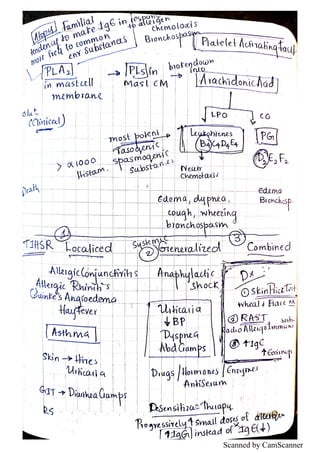 Atopy: Familial
tendency to make IgE in response
more field to common to allergen
env substances
Chemotaxis
Bronchospasm
Platelet Activating fact
PLA2 → PLs in broken down into
in mast cell Mast CM Arachidonic Acid
membrane
(Clinical)
LPO CO
most potent Leukotrienes PG
Vasogenic B4C4D4E4
> x1000 spasmogenic D2E2F2
Histam. substances
Neutr
Chemotaxis
Death
Edema, dypnea, edema
cough, wheezing Bronchosp.
bronchospasm
① Systemic ③
TIHSR Localized ② Generalized Combined
Allergic Conjunctivitis Anaphylactic
Allergic Rhinitis Shock
Quinke's Angioedema
Hayfever
Dx
① Skin Prick Test
Wheal & Flare
② RAST
Radio Allergo Immuno
③ ↑ IgE
↑ Eosinop
Asthma
Urticaria
↓ BP
Dyspnea
Abd Cramps
Skin → Hives
Urticaria
GIT → Diarrhea Cramps
RS
Drugs / Hormones / Enzymes
AntiSerum
Desensitiza: Therapy
Progressively ↑ small doses of allergen
↑ IgG instead of IgE (↓)
Scanned by CamScanner